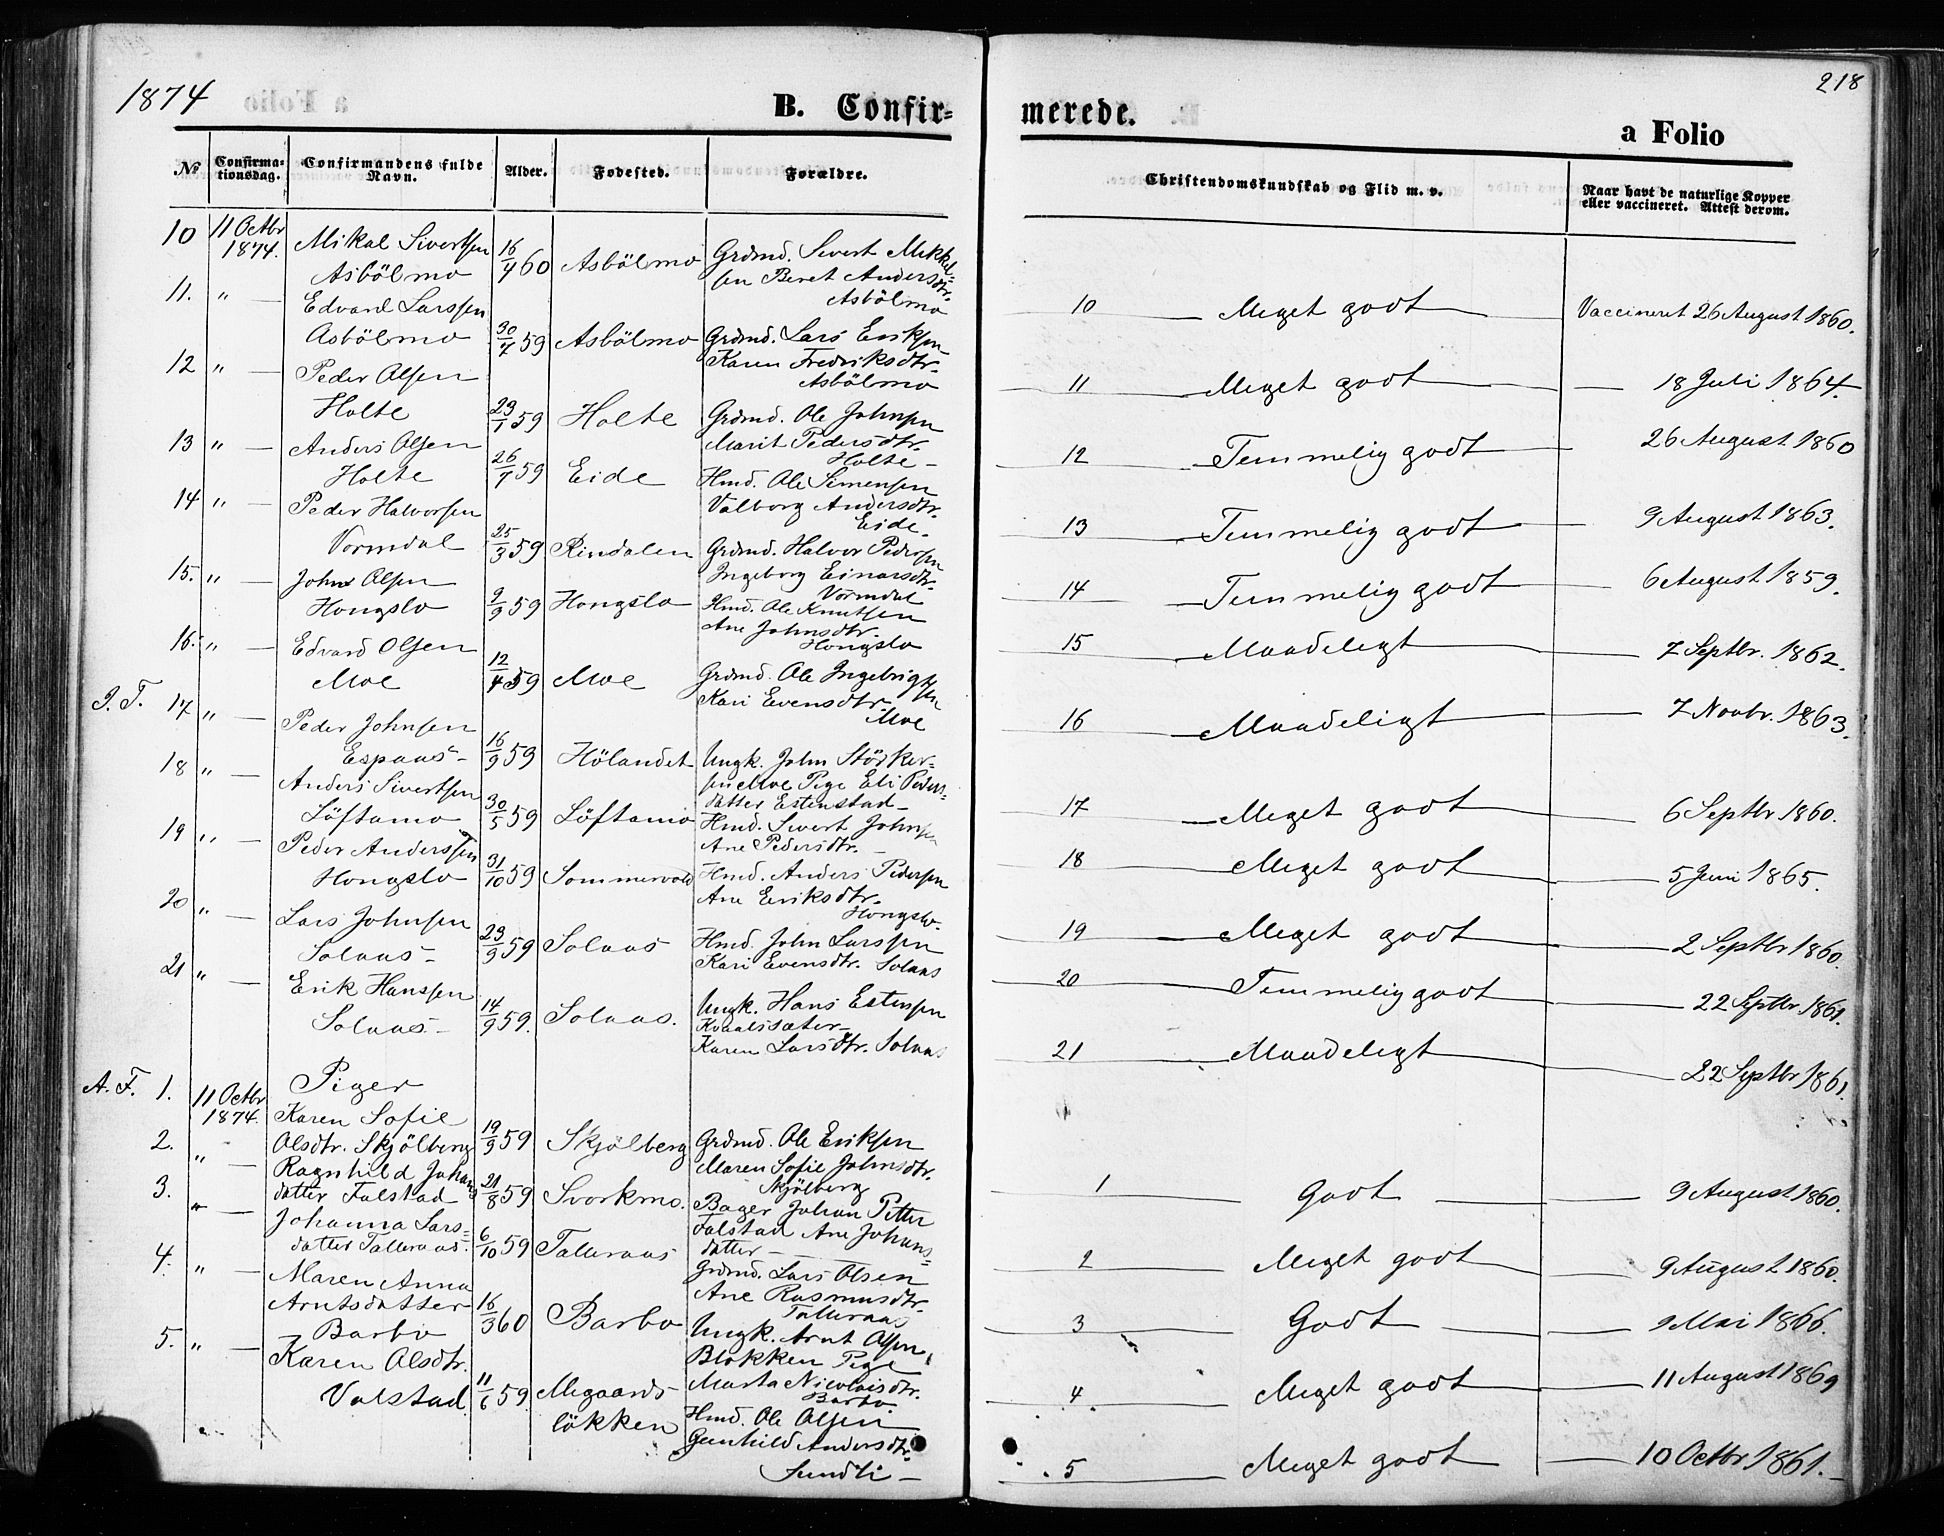 1874
B. Confir-
№
Confirma-
tionsdag.
Confirmandens fulde
Navn.
Alder.
Fødested.
Forældre.
10 11 Octbr 1874. Mikal Sivertsen Asbölmo 16/4 60 Asbölmo Grdmd. Sivert Mikkel-
sen Beret Andersdtr.
Asbölmo
11. " — Edvard Larssen
Asbölmo 30/4 59 Asbölmo Grdmd. Lars Eriksen
Karen Fredriksdtr.
Asbölmo
12 " — Peder Olsen
Holte 29/1 59 Holte Grdmd. Ole Johnsen
Marit Pedersdtr.
Holte —
13 " — Anders Olsen
Holte 26/7 59 Eide Hmd. Ole Simensen
Valborg Andersdtr.
Eide.
14 " — Peder Halvorsen
Vormdal 25/3 59 Rindalen Grdmd. Halvor Pedersen
Ingeborg Einarsdtr.
Vormdal
15. " — John Olsen
Hongslo 9/9 59 Hongslo Hmd. Ole Knutsen
Ane Johnsdtr.
Hongslo
16. " — Edvard Olsen
Moe 12/4 59 Moe Grdmd. Ole Ingebrigtsen
Kari Evensdtr.
Moe
J. F. 17 " — Peder Johnsen
Espaas — 16/9 59 Hölandet Ungk. John Störker-
sen Moe Pige Eli Peders-
datter Estenstad —
18 " — Anders Sivertsen
Löftamo 30/5 59 Löftamo Hmd. Sivert Johnsen
Ane Pedersdtr. —
19 " — Peder Anderssen
Hongslo 31/10 59 Sommervold Hmd. Anders Pedersen
Ane Eriksdtr.
Hongslo.
20 " — Lars Johnsen
Solaas — 29/9 59 Solaas Hmd. John Larssen
Kari Evensdtr. Solaas
21 " — Erik Hanssen
Solaas — 14/9 59. Solaas. Ungk. Hans Estensen
Kvaalssæter —
Karen Larsdtr. Solaas
Piger
A. F. 1. 11 Octbr 1874. Karen Sofie
Olsdtr. Skjölberg 19/9 59 Skjölberg Grdmd. Ole Eriksen
Maren Sofie Johnsdtr.
Skjölberg
2. " — Ragnhild Johans
datter Falstad 21/8 59 Svorkmo. Bager Johan Petter
Falstad Ane Johans=
datter —
3. " — Johanna Lars=
datter Talleraas. 6/10 59 Talleraas Grdmd. Lars Olsen
Ane Rasmusdtr.
Talleraas
4. " — Maren Anna
Arntsdatter
Barbo 16/3 60 Barbo Ungk. Arnt Olsen,
Blokken Pige
Marta Nicolaisdtr.
Barbo.
5. " — Karen Olsdtr.
Valstad 11/6 59 Megaards
lökken Hmd. Ole Olsen
Gunhild Andersdtr.
Sundli —
218
merede.
a Folio
Christendomskundskab og Flid m. v.
Naar havt de naturlige Kopper
eller vaccineret. Attest derom.
10 — Meget godt — Vaccineret 26 August 1860.
11 — Meget godt — 18 Juli 1864.
12 — Temmelig godt — 26 August 1860
13 — Temmelig godt — 9 August 1863.
14 — Temmelig godt — 6 August 1859.
15 — Maadeligt — 7 Septbr. 1862.
16 — Maadeligt — 7 Novbr. 1863.
17 — Meget godt — 6 Septbr 1860.
18 — Meget godt — 5 Juni 1865.
19 — Meget godt — 2 Septbr 1860.
20 — Temmelig godt — 22 Septbr. 1861.
21 — Maadeligt — 22 Septbr 1861.
1 — Godt — 9 August 1860.
2 — Meget godt — 9 August 1860.
3 — Godt — 9 Mai 1866.
4 — Meget godt — 11 August 1869
5 — Meget godt — 10 Octbr 1861. —